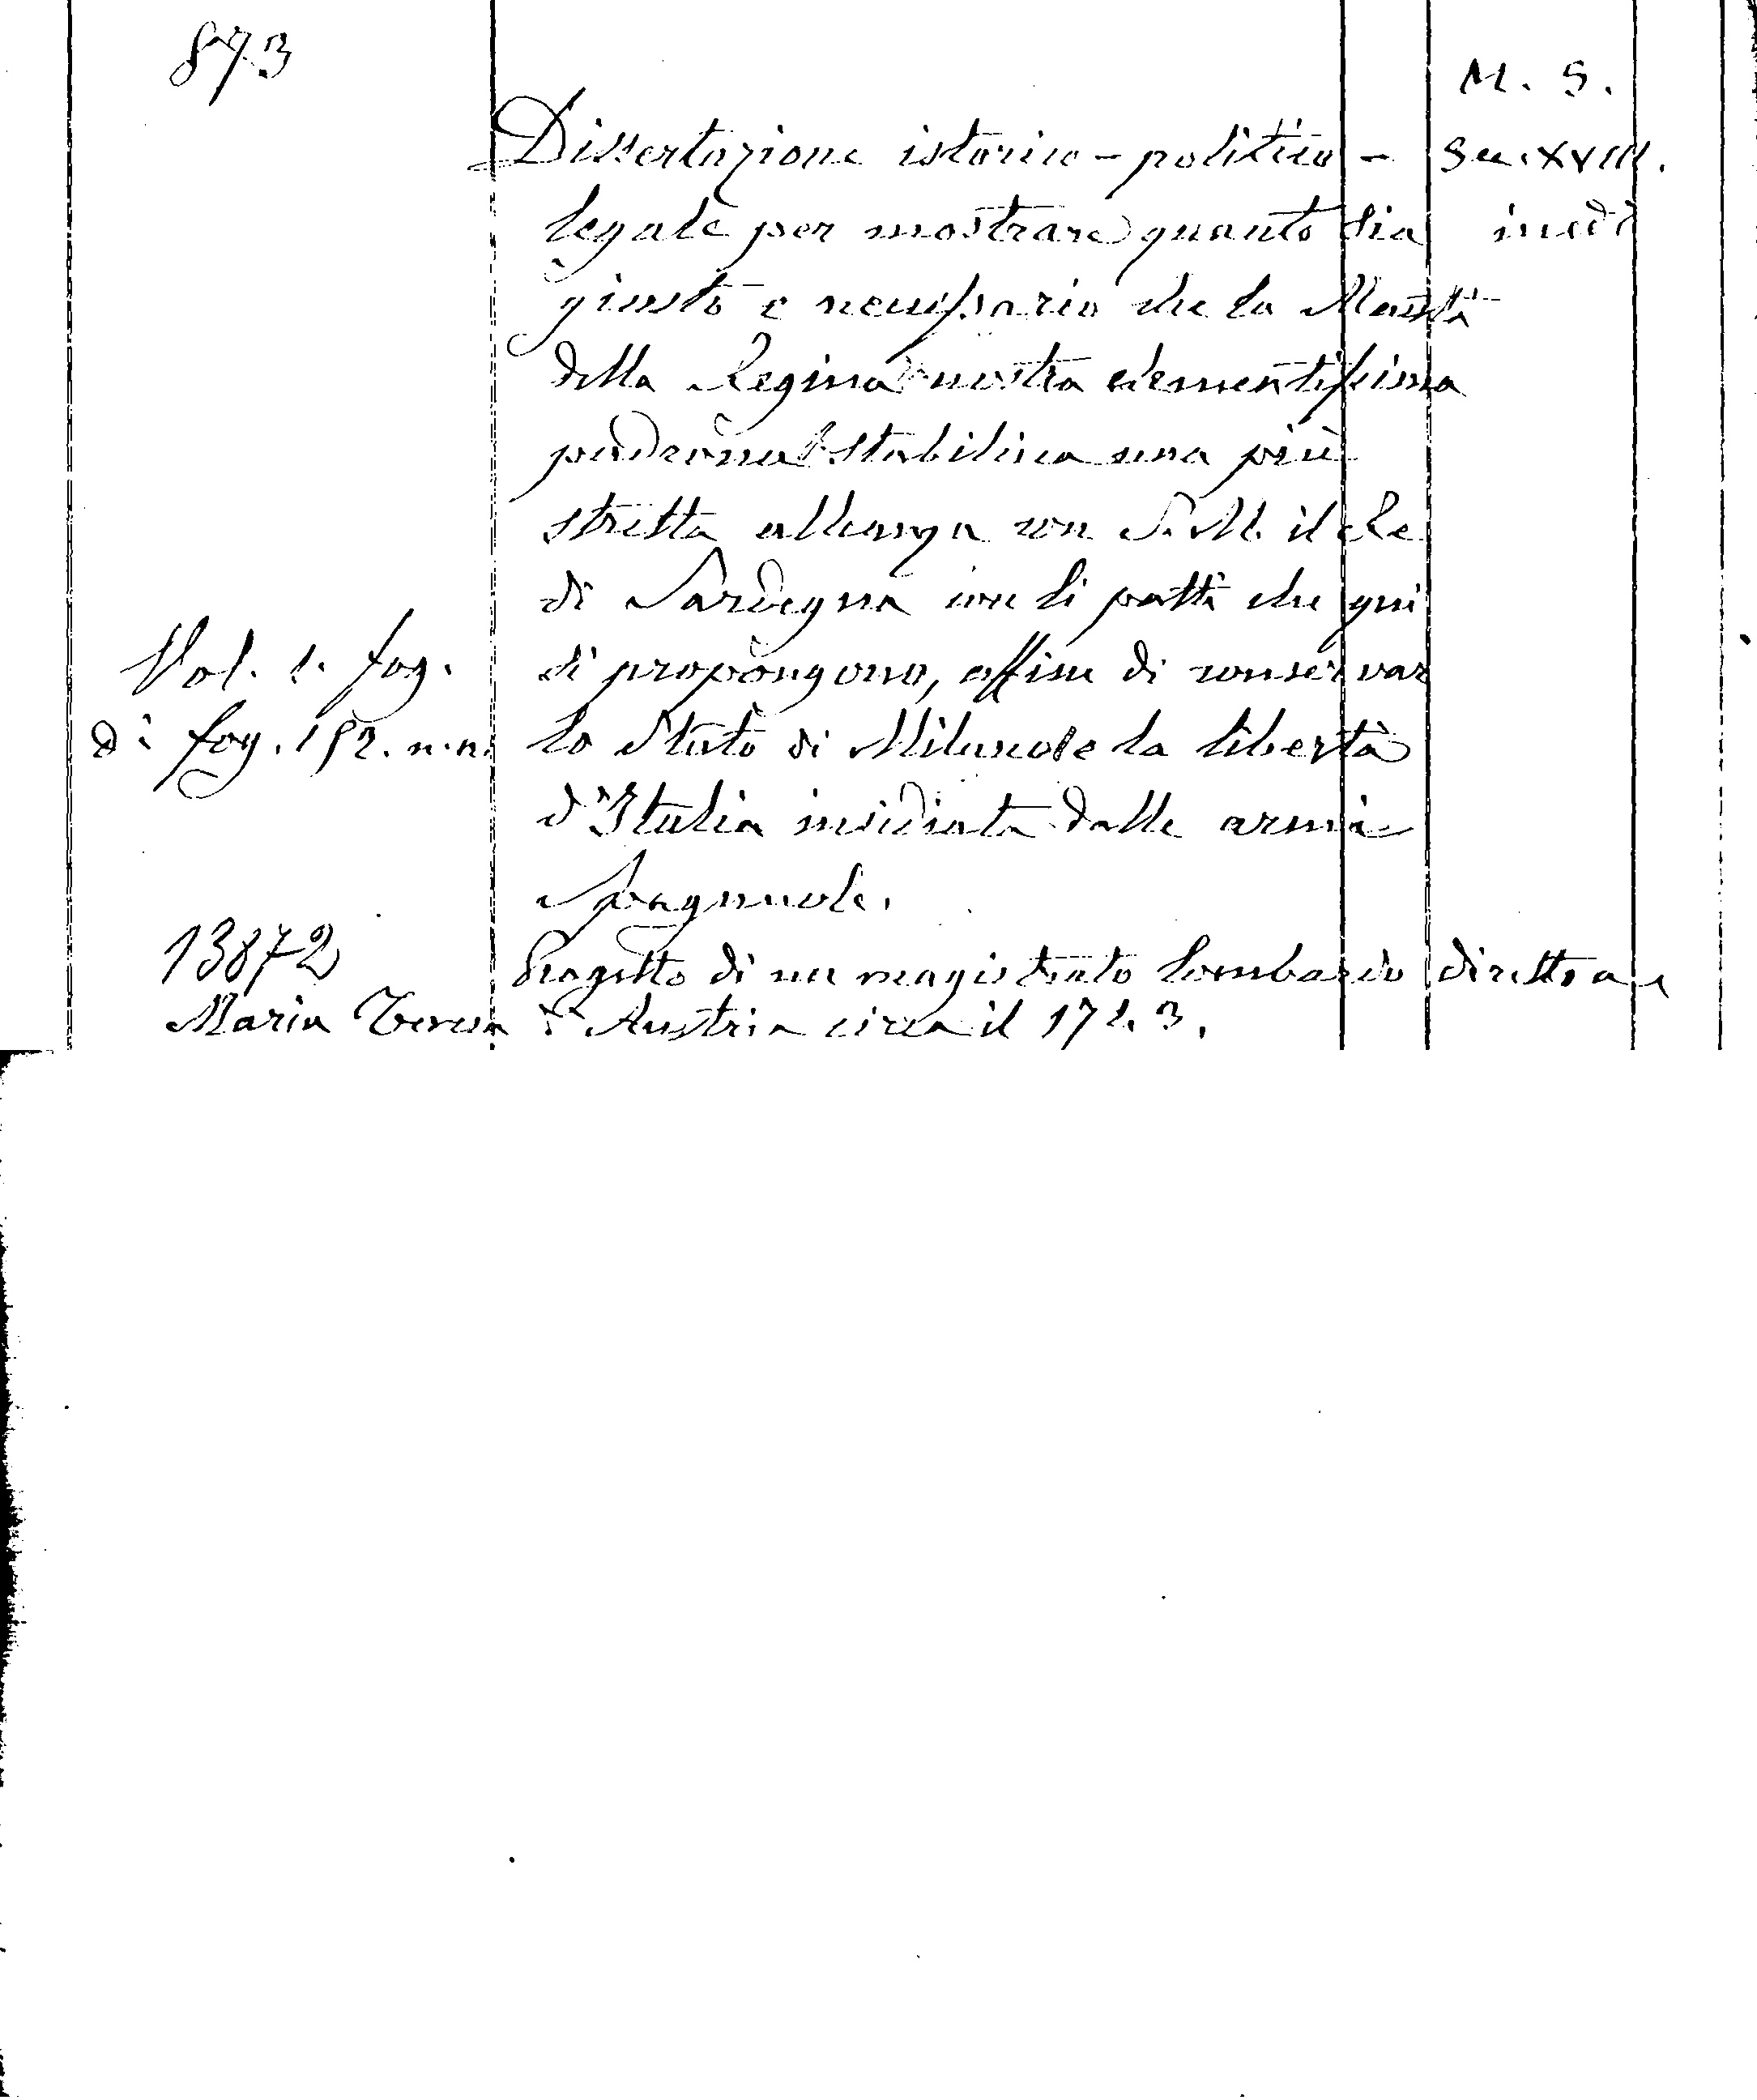 873
M. S.
Dissertazione istorico-politico- Sec. XVIII.
legale per mostrare quanto sia inedi
giusto e necessario che la Maestà
della Regina nostra clementissima
padrona stabilisca una più
stretta alleanza con S. M. il Re
di Sardegna con li patti che qui
Vol. 1. fog. si propongono, affine di conservar
di fog. 152. n.n. lo Stato di Milano e la libertà
d'Italia insidiata dalle armi
Spagnuole.
13872 Progetto di un magistrato Lombardo diretto a
Maria Teresa d'Austria circa il